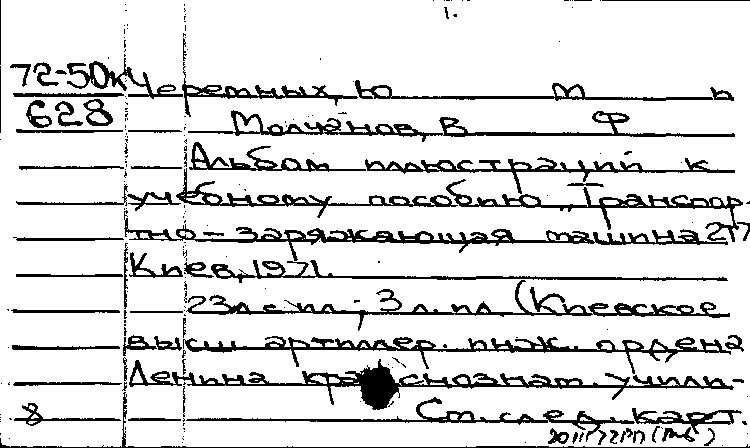 1.
72-50к Черемных, Ю М п
628 Молчанов, В Ф
Альбом иллюстраций к
учебному пособию „Транспор-
тно-заряжающая машина 2Т7
Киев, 1971.
23л с ил.; 3 л. ил. (Киевское
высш. артиллер. инж. ордена
Ленина краснознам. учили-
8 См. след. карт.